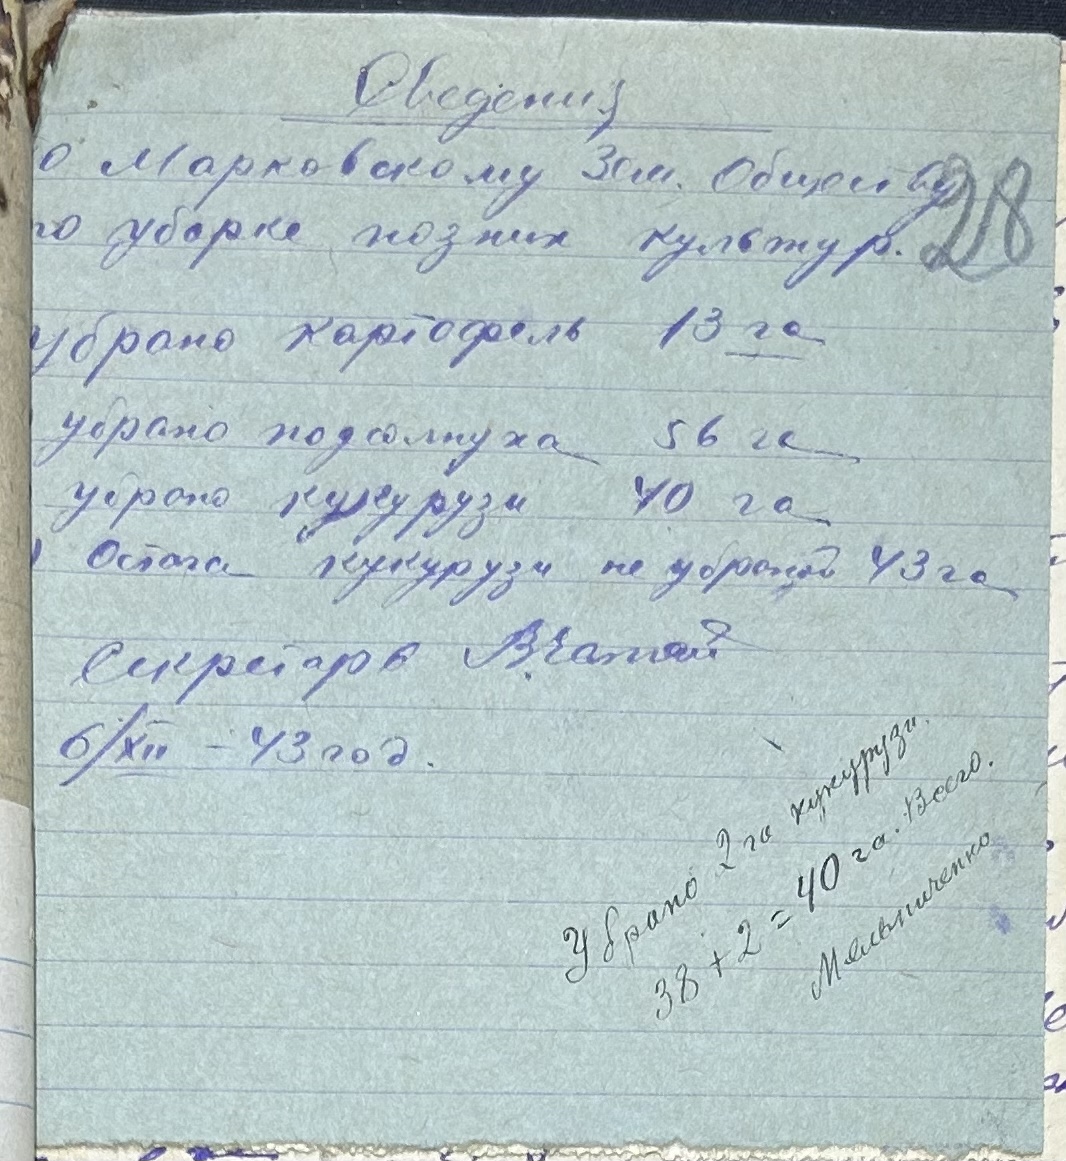 Сведения
о Марковскому Зем. Обществу
28
по уборке позних культур.
убрано картофель 13 га
убрано подсолнуха 56 га
убрано кукурузи 40 га
Остага кукурузи не убраной 43 га
Секретарь
6/XII - 43 год.
Убрано 2 га кукурузи.
38 + 2 = 40 га. Всего.
Мельниченко